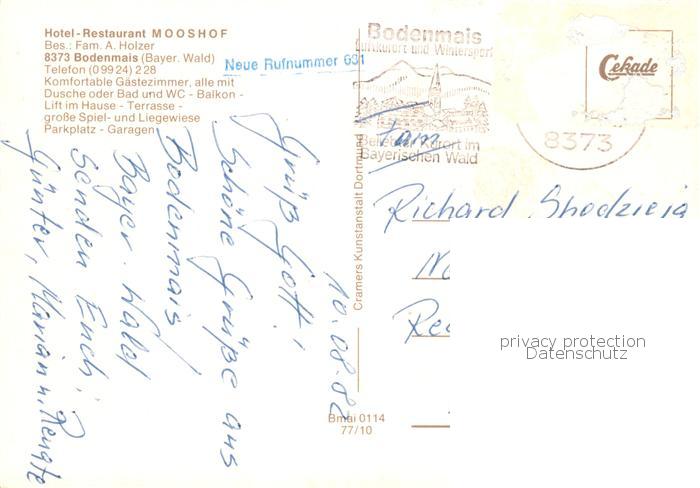 Hotel-Restaurant MOOSHOF
Bes.: Fam. A. Holzer
8373 Bodenmais (Bayer. Wald)
Telefon (09924) 228
Komfortable Gästezimmer, alle mit
Dusche oder Bad und WC - Balkon -
Lift im Hause - Terrasse -
große Spiel- und Liegewiese
Parkplatz - Garagen
Neue Rufnummer 631
Bodenmais
Luftkurort und Wintersport
Beliebter Kurort im
Bayerischen Wald
Cekade
8373
10.08.82
Grüß Gott!
Schöne Grüße aus
Bodenmais
Bayer. Wald
Senden Euch:
Günter, Marian u. Renate
Cramers Kunstanstalt Dortmund
Bmai 0114
77/10
Fam
Richard
privacy protection
Datenschutz